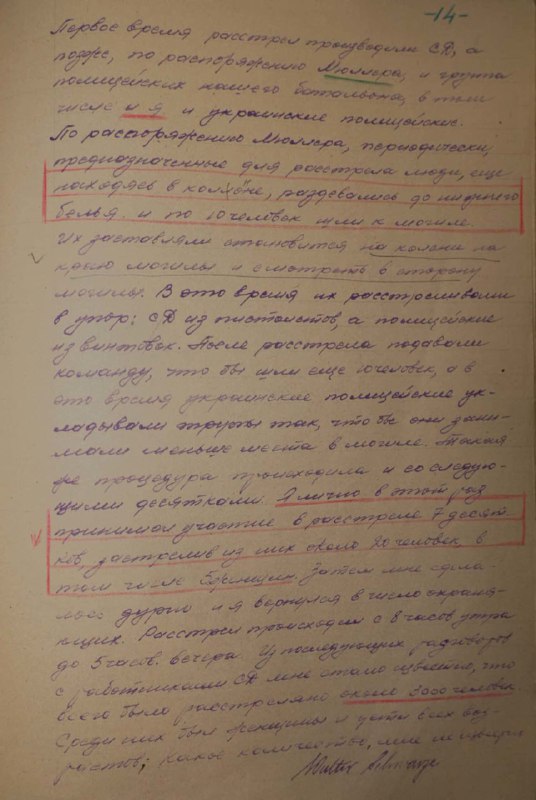 -14-
Первое время расстрел производили СД, а
позже, по распоряжению Мюллера, и группа
полицейских нашего батальона, в том
числе и я и украинские полицейские.
По распоряжению Мюллера, периодически,
предназначенные для расстрела люди, еще
находясь в колоне, раздевались до нижнего
белья и по 10 человек шли к могиле.
Их заставляли становится на колени на
краю могилы и смотреть в сторону
могилы. В это время их расстреливали
в упор: СД из пистолетов, а полицейские
из винтовок. После расстрела подавали
команду, что бы шли еще 10 человек, а в
это время украинские полицейские ук-
ладывали трупы так, что бы они зани-
мали меньше места в могиле. Такая
же процедура происходила и со следую-
щими десятками. Я лично в этот раз
принимал участие в расстреле 7 десят
ков, застрелив из них около 20 человек, в
том числе женщин. Затем мне сдела-
лось дурно и я вернулся в число охраня-
ющих. Расстрел происходил с 8 часов утра
до 5 часов вечера. Из последующих разговоров
с работниками СД мне стало известно, что
всего было расстреляно около 3000 человек.
Среди них был женщины и дети всех воз-
растов; какое количество, мне не